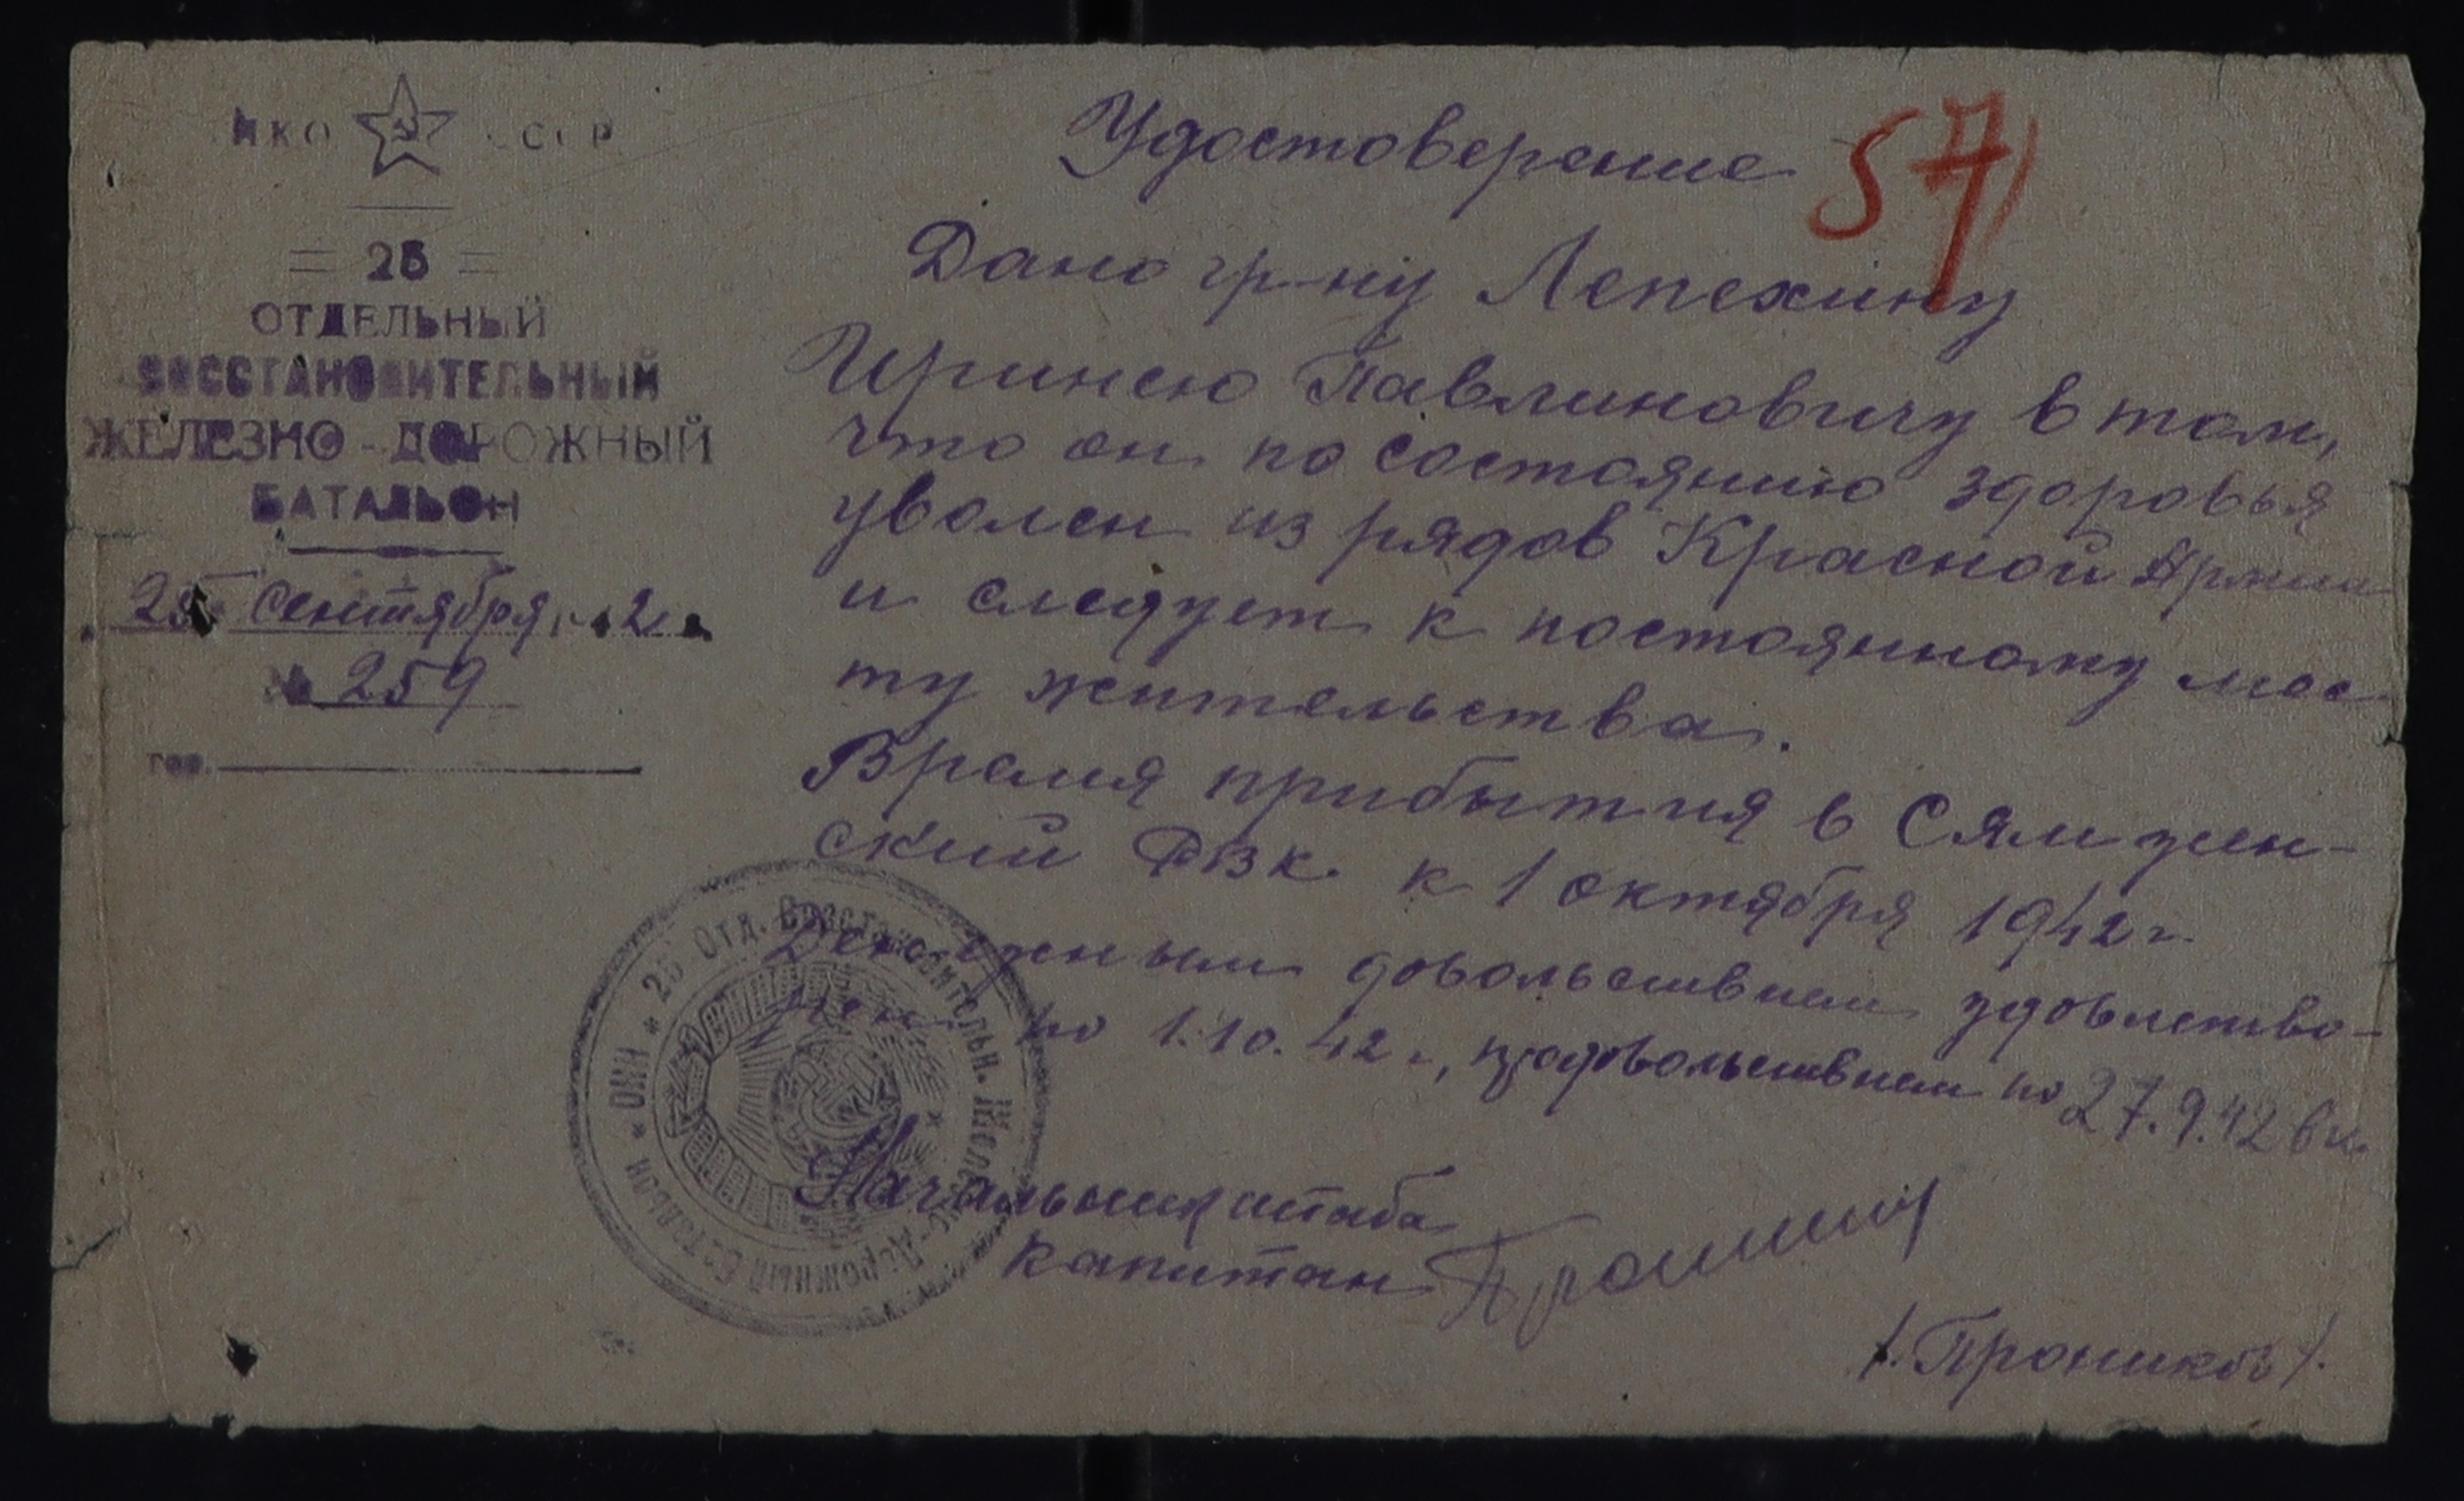 НКО СССР
= 25 =
ОТДЕЛЬНЫЙ
ВОССТАНОВИТЕЛЬНЫЙ
ЖЕЛЕЗНО-ДОРОЖНЫЙ
БАТАЛЬОН
25 сентября 42
№ 259
гор.
57
Удостоверение
Дано гр-ну Лепехину
Иринею Павлиновичу в том,
что он по состоянию здоровья
уволен из рядов Красной Армии
и следует к постоянному мес
ту жительства.
Время прибытия в Сямжен-
ский РВК. к 1 октября 1942 г.
Денежным довольствием удовлетво-
рен по 1.10.42 г., продовольствием по 27.9.42 вк.
Начальник штаба
Капитан
/.Прошиков/.
* 25 Отд. Восстановительн. Железно-Дорожный Батальон *